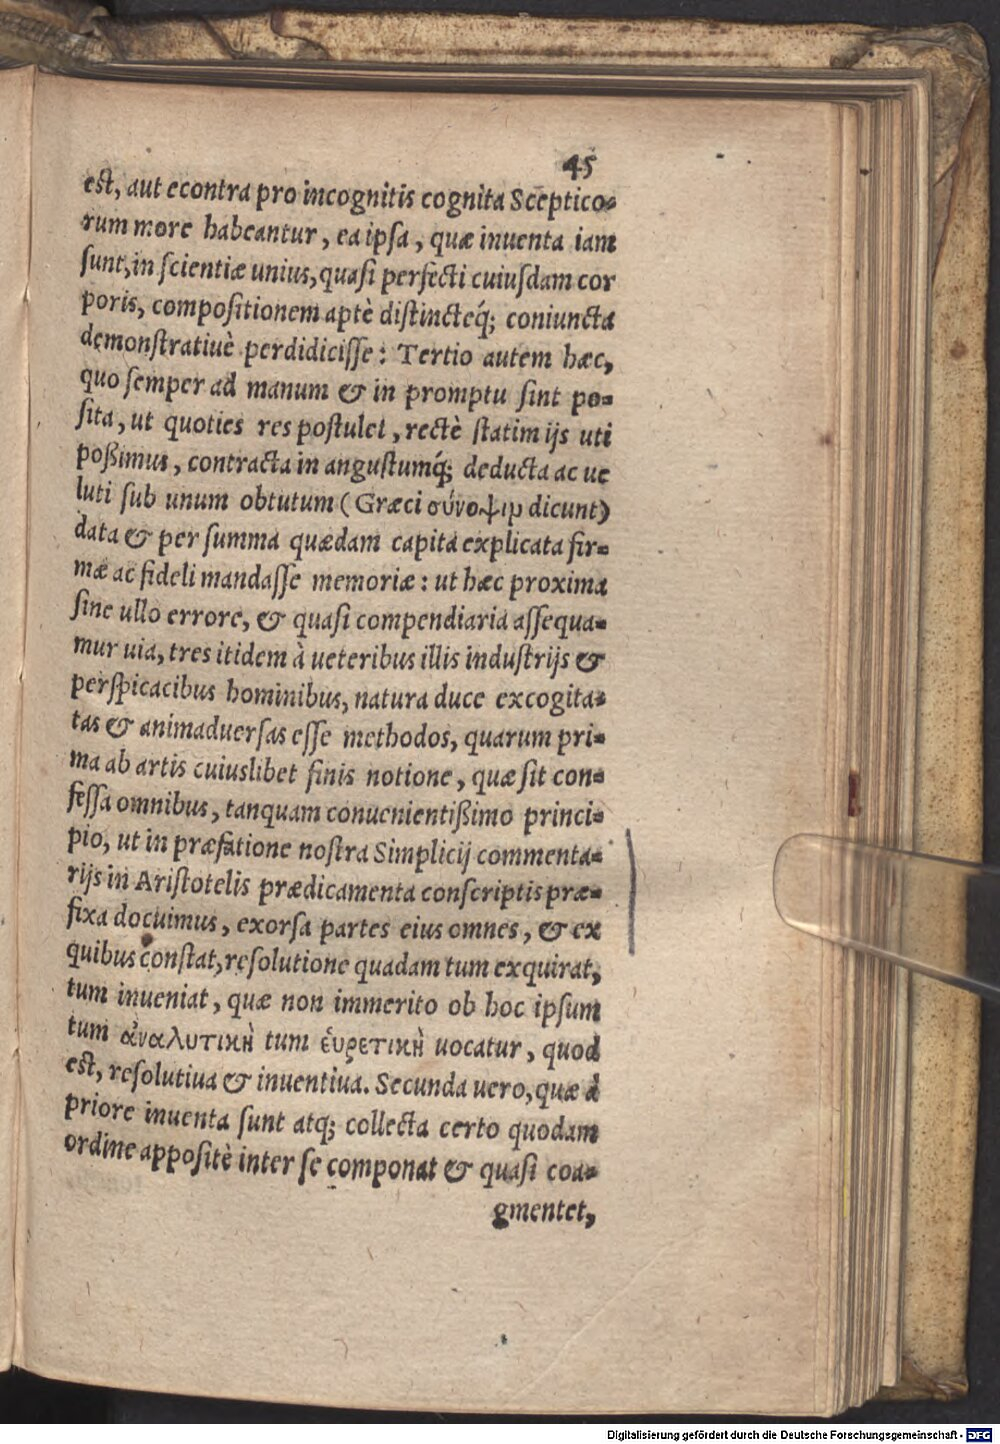 45
est, aut econtra pro incognitis cognita Sceptico-
rum more habeantur, ea ipsa, quæ inuenta iam
sunt, in scientiæ unius, quasi perfecti cuiusdam cor
poris, compositionem aptè distincteq́; coniuncta
demonstratiuè perdidicisse: Tertio autem hæc,
quo semper ad manum & in promptu sint po-
sita, ut quoties res postulet, rectè statim ijs uti
poßimus, contracta in angustumq́; deducta ac ue
luti sub unum obtutum (Græci σύνοψιν dicunt)
data & per summa quædam capita explicata fir-
mæ ac fideli mandasse memoriæ: ut hæc proxima
sine ullo errore, & quasi compendiaria assequa-
mur uia, tres itidem à ueteribus illis industrijs &
perspicacibus hominibus, natura duce excogita-
tas & animaduersas esse methodos, quarum pri-
ma ab artis cuiuslibet finis notione, quæ sit con-
fessa omnibus, tanquam conuenientißimo princi-
pio, ut in præfatione nostra Simplicij commenta-
rijs in Aristotelis prædicamenta conscriptis præ-
fixa docuimus, exorsa partes eius omnes, & ex
quibus constat, resolutione quadam tum exquirat,
tum inueniat, quæ non immerito ob hoc ipsum
tum ἀναλυτικὴ tum εὑρετικὴ uocatur, quod
est, resolutiua & inuentiua. Secunda uero, quæ à
priore inuenta sunt atq; collecta certo quodam
ordine appositè inter se componat & quasi coa-
gmentet,
Digitalisierung gefördert durch die Deutsche Forschungsgemeinschaft - DFG